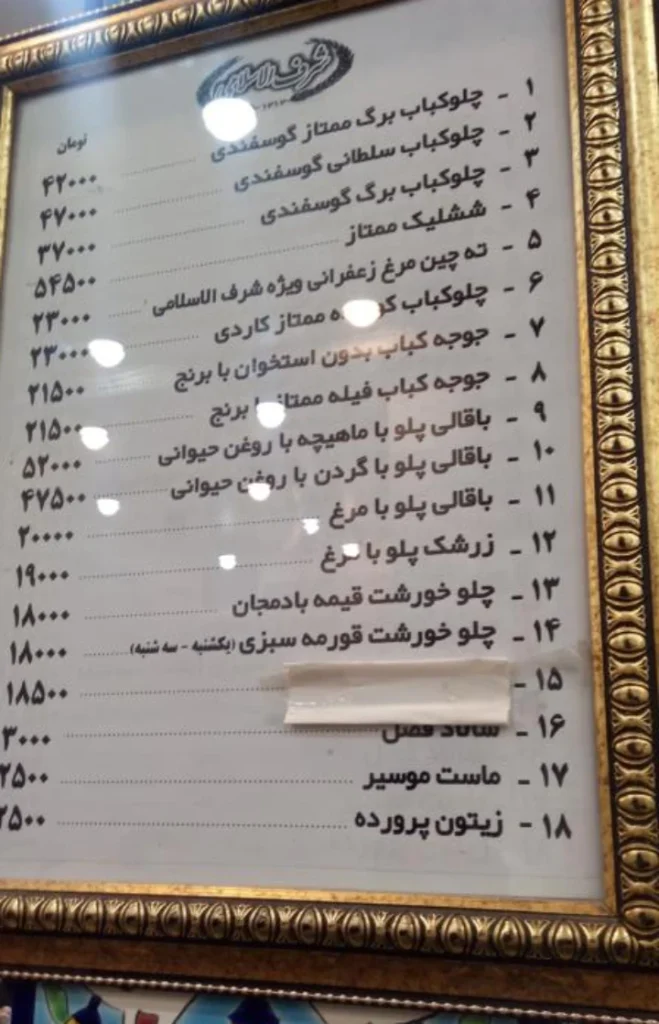 شرف الاسلامی
۱۳۱۳
تومان
۱ - چلوکباب برگ ممتاز گوسفندی ۴۲۰۰۰
۲ - چلوکباب سلطانی گوسفندی ۴۷۰۰۰
۳ - چلوکباب برگ گوسفندی ۳۷۰۰۰
۴ - ششلیک ممتاز ۵۴۵۰۰
۵ - ته چین مرغ زعفرانی ویژه شرف الاسلامی ۲۳۰۰۰
۶ - چلوکباب ممتاز کاردی ۲۳۰۰۰
۷ - جوجه کباب بدون استخوان با برنج ۲۱۵۰۰
۸ - جوجه کباب فیله ممتاز با برنج ۲۱۵۰۰
۹ - باقالی پلو با ماهیچه با روغن حیوانی ۵۲۰۰۰
۱۰ - باقالی پلو با گردن با روغن حیوانی ۴۷۵۰۰
۱۱ - باقالی پلو با مرغ ۲۰۰۰۰
۱۲ - زرشک پلو با مرغ ۱۹۰۰۰
۱۳ - چلو خورشت قیمه بادمجان ۱۸۰۰۰
۱۴ - چلو خورشت قورمه سبزی (یکشنبه - سه شنبه) ۱۸۰۰۰
۱۵ - ۱۸۵۰۰
۱۶ - سالاد فصل ۳۰۰۰
۱۷ - ماست موسیر ۲۵۰۰
۱۸ - زیتون پرورده ۲۵۰۰